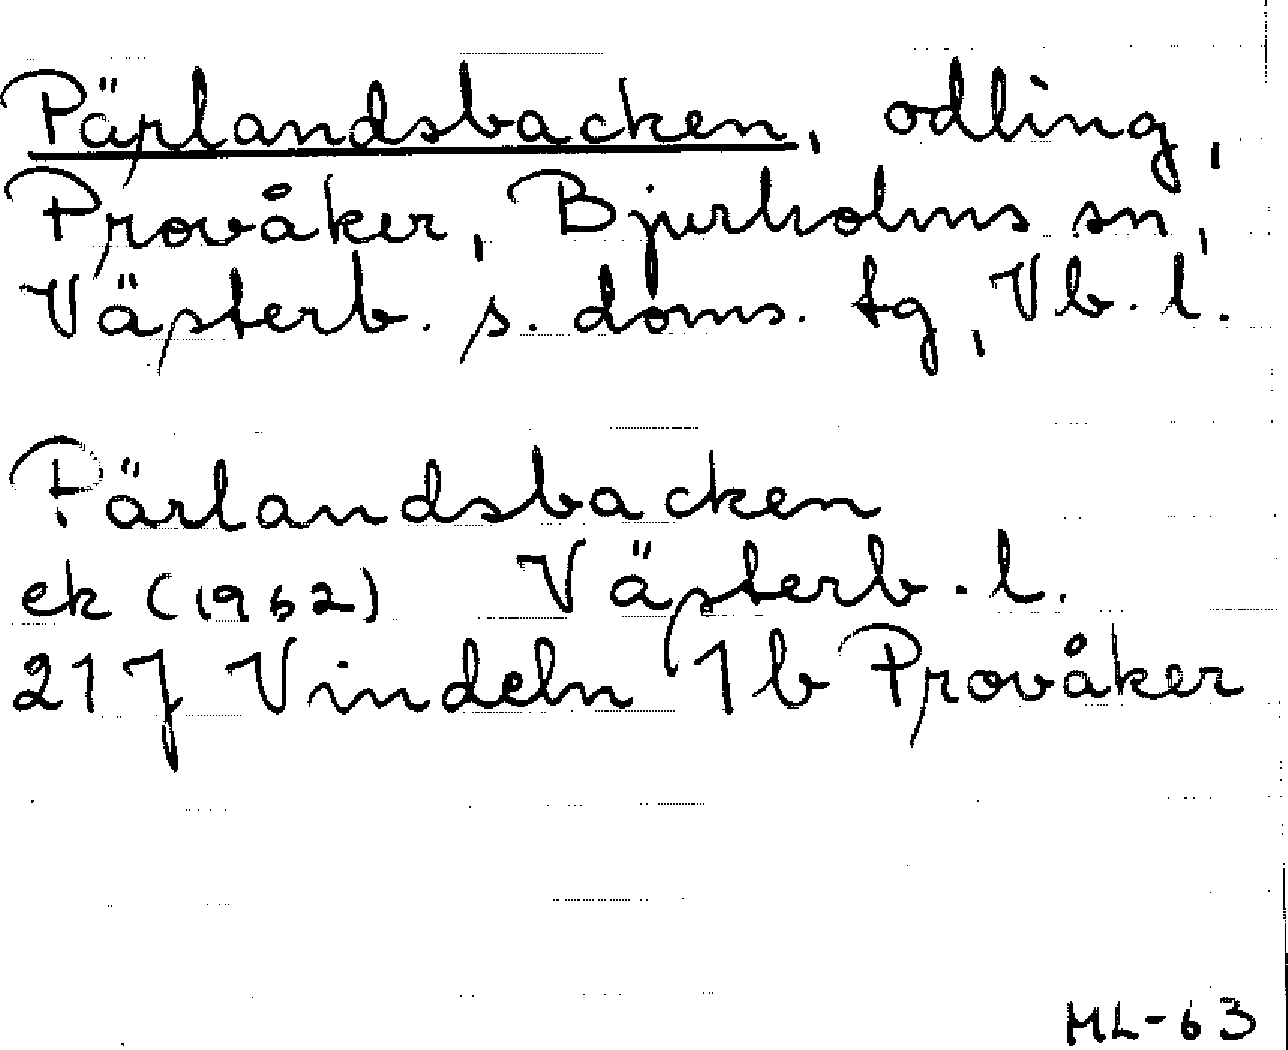 Pärlandsbacken, odling,
Provåker, Bjurholms sn,
Västerb. s. doms. tg, Vb. l.
Pärlandsbacken
ek (1962) Västerb. l.
21 J Vindeln 1 b Provåker
ML-63